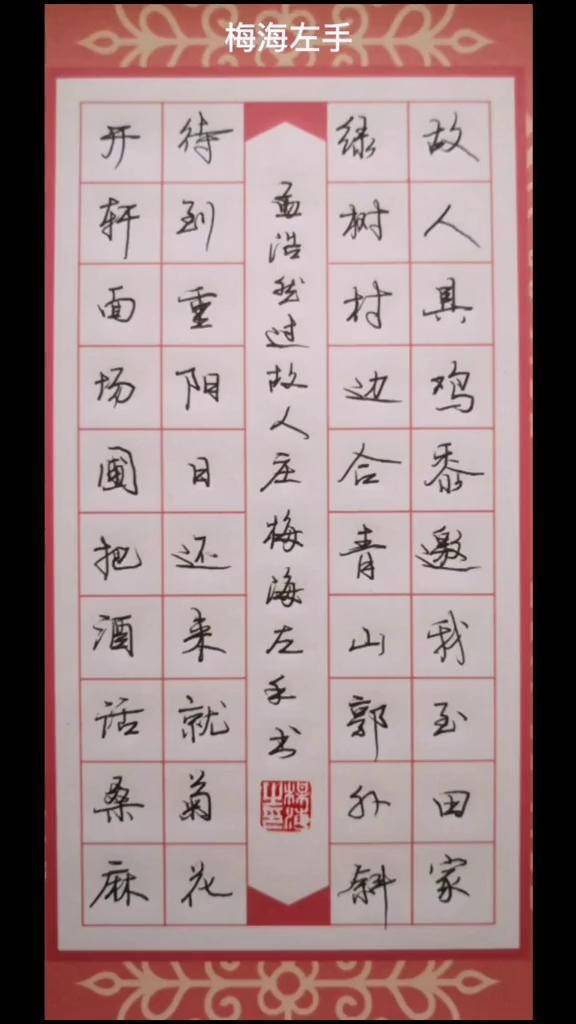 梅海左手
故人具鸡黍邀我至田家
绿树村边合青山郭外斜
孟浩然过故人庄梅海左手书
梅海之印
待到重阳日还来就菊花
开轩面场圃把酒话桑麻